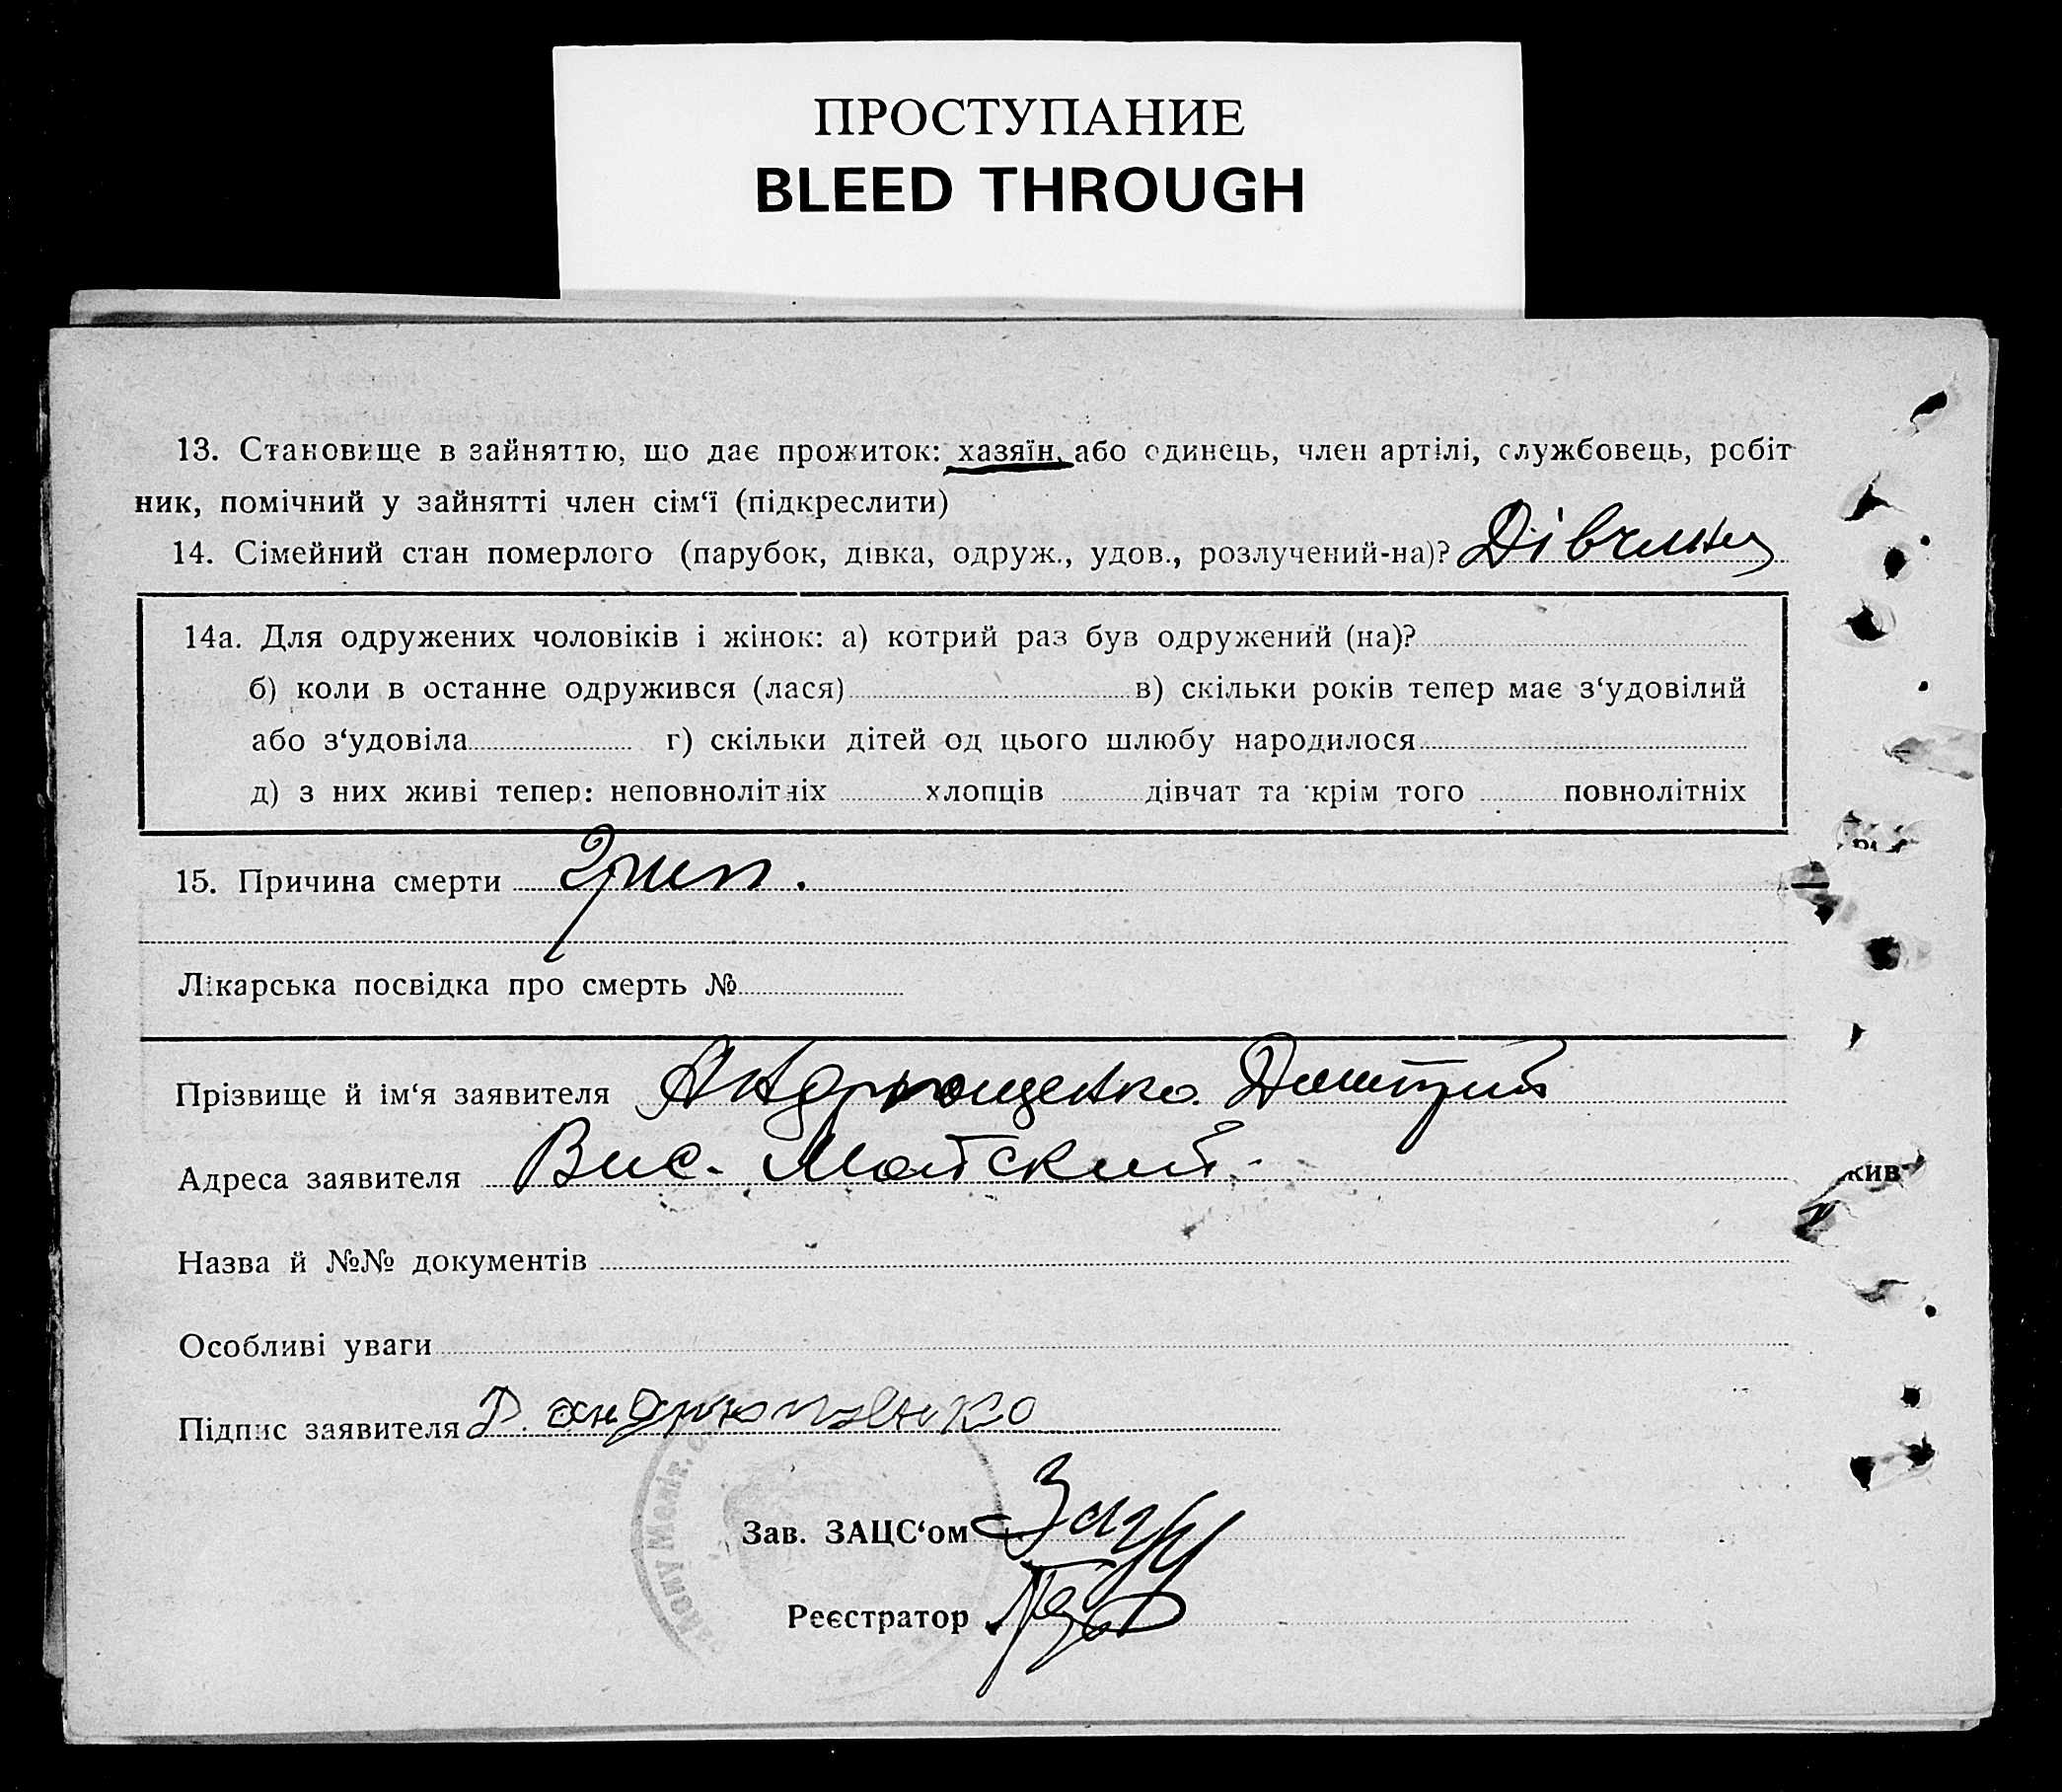 ПРОСТУПАНИЕ
BLEED THROUGH
13. Становище в зайняттю, що дає прожиток: хазяїн, або одинець, член артілі, службовець, робіт-
ник, помічний у зайнятті член сім‘ї (підкреслити)
14. Сімейний стан померлого (парубок, дівка, одруж., удов., розлучений-на)? Дівчина
14а. Для одружених чоловіків і жінок: а) котрий раз був одружений (на)?
б) коли в останнє одружився (лася) в) скільки років тепер має з‘удовілий
або з‘удовіла г) скільки дітей од цього шлюбу народилося
д) з них живі тепер: неповнолітніх хлопців дівчат та крім того повнолітніх
15. Причина смерти Грип.
Лікарська посвідка про смерть №
Прізвище й ім‘я заявителя Андрющенко Дмитрий
Адреса заявителя Вис. Майский.
Назва й №№ документів
Особливі уваги
Підпис заявителя Д. андрющенко
Зав. ЗАЦС‘ом
Реєстратор